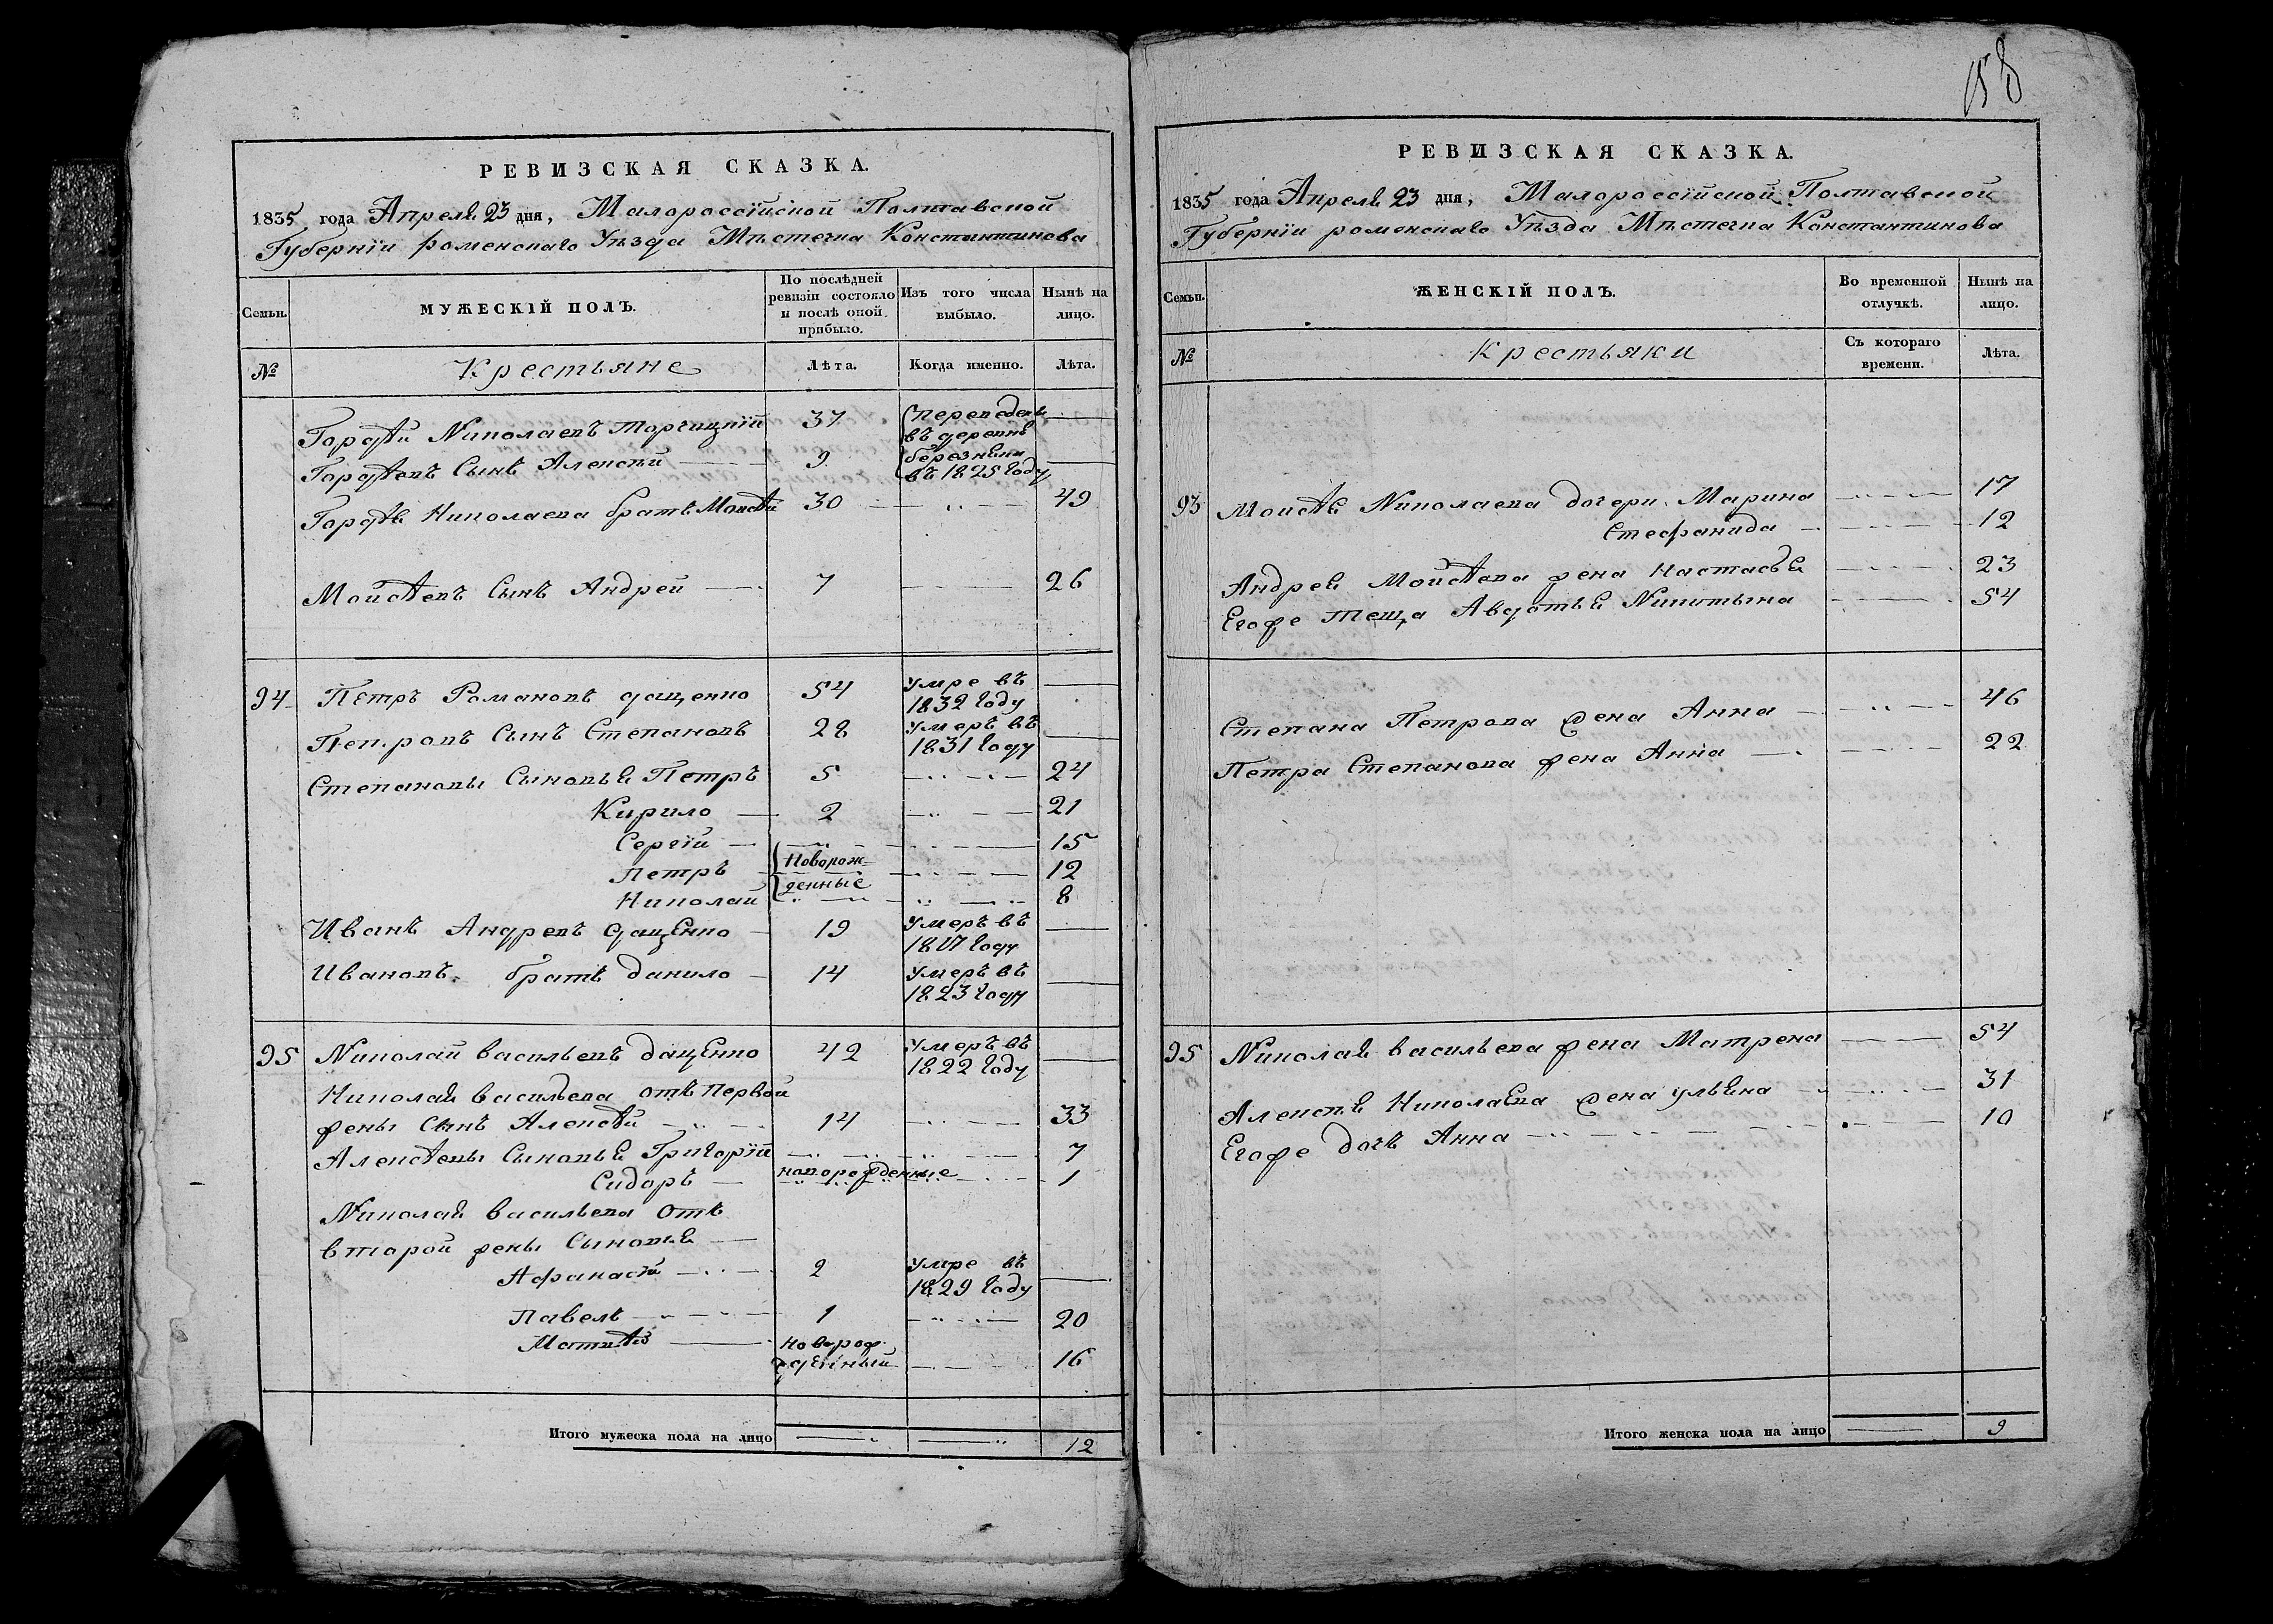 158
РЕВИЗСКАЯ СКАЗКА.
1835 года Апреля 23 дня, Малороссійской Полтавской
Губерніи роменскаго Уѣзда Мѣстечка Константинова
Семьи.
МУЖЕСКІЙ ПОЛЪ.
По послѣдней ревизіи состояло и послѣ оной прибыло.
Изъ того числа выбыло.
Нынѣ на лицо.
№
Крестьяне
Лѣта.
Когда именно.
Лѣта.
Гордѣй Николаевъ 37 переведены
въ деревнѣ
Гордѣевъ Сынъ Алексѣй 9
въ 1825 году
Гордѣя Николаева братъ Моисѣй 30 49
Мойсѣевъ Сынъ Андрей 7 26
94 Петръ Романовъ дащенко 54 умре въ
1832 году
Петровъ Сынъ Степановъ 28 умеръ въ
1831 году
Степановы Сыновья Петръ 5 24
Кирило 2 21
Сергій 15
Новорож-
Петръ 12
денные
Николай 8
Иванъ Андреевъ дащенко 19 умеръ въ
1817 году
Ивановъ братъ данило 14 умеръ въ
1823 году
95 Николай васильевъ дащенко 42 умеръ въ
1822 году
Николая васильева отъ первой
жены Сынъ Алексѣй 14 33
Алексѣевы Сыновья Григорій 7
новорожденные
Сидоръ 1
Николая васильева отъ
второй жены Сыновья
Афанасій 2 умре въ
1829 году
Павелъ 1 20
Матвѣй новорож
денный 16
Итого мужеска пола на лицо 12
РЕВИЗСКАЯ СКАЗКА.
1835 года Апреля 23 дня, Малороссійской Полтавской
Губерніи роменскаго Уѣзда Мѣстечка Константинова
Семьи.
ЖЕНСКІЙ ПОЛЪ.
Во временной отлучкѣ.
Нынѣ на лицо.
№
Крестьяки
Съ котораго времени.
Лѣта.
93 Моисѣя Николаева дочери Марина 17
Стефанида 12
Андрея Мойсѣева жена Настасья 23
Егоже теща Авдотья Никитына 54
Степана Петрова жена Анна 46
Петра Степанова жена Анна 22
95 Николая васильева жена Матрена 54
Алексѣя Николаева жена ульяна 31
Егоже дочь Анна 10
Итого женска пола на лицо 9